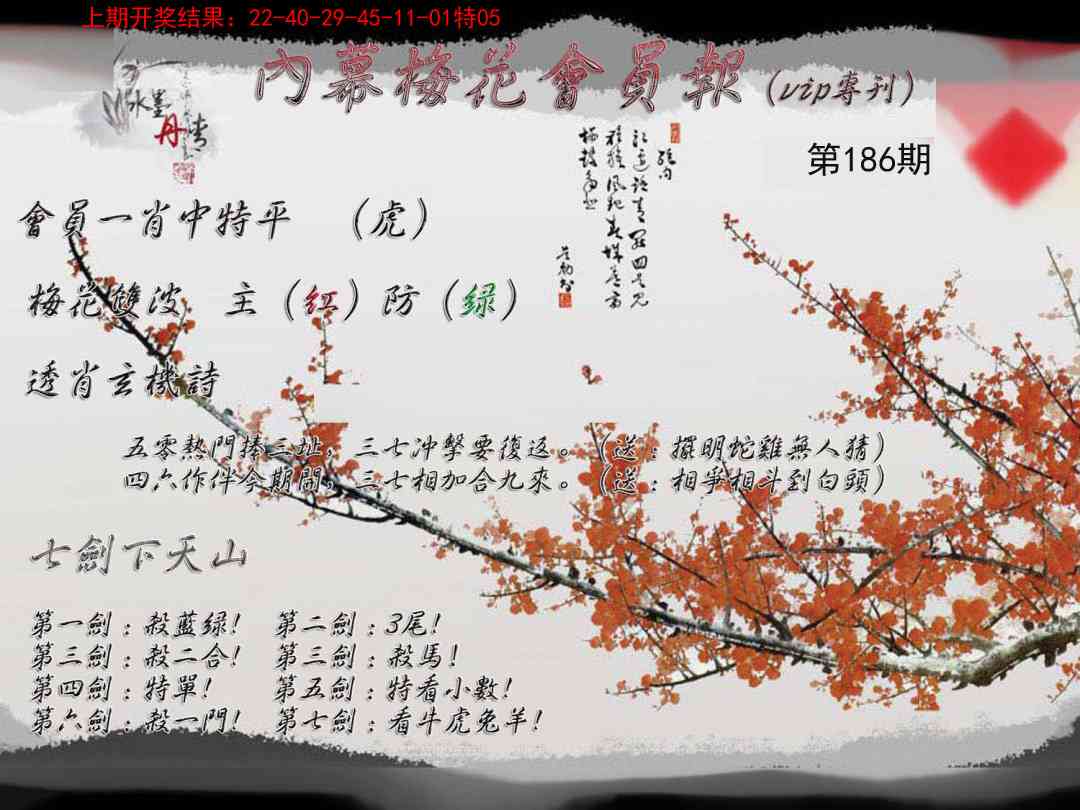 上期开奖结果：22-40-29-45-11-01特05
內幕梅花會員報（vip專刊）
水墨
丹青
第186期
會員一肖中特平　（虎）
梅花雙波　主（红）防（绿）
透肖玄機詩
五零熱門捧三址，三七冲擊要復返。（送：擺明蛇雞無人猜）
四六作伴今期開，三七相加合九來。（送：相爭相斗到白頭）
七劍下天山
第一劍：殺藍绿！　第二劍：3尾！
第三劍：殺二合！　第三劍：殺馬！
第四劍：特單！　第五劍：特看小數！
第六劍：殺一門！　第七劍：看牛虎兔羊！